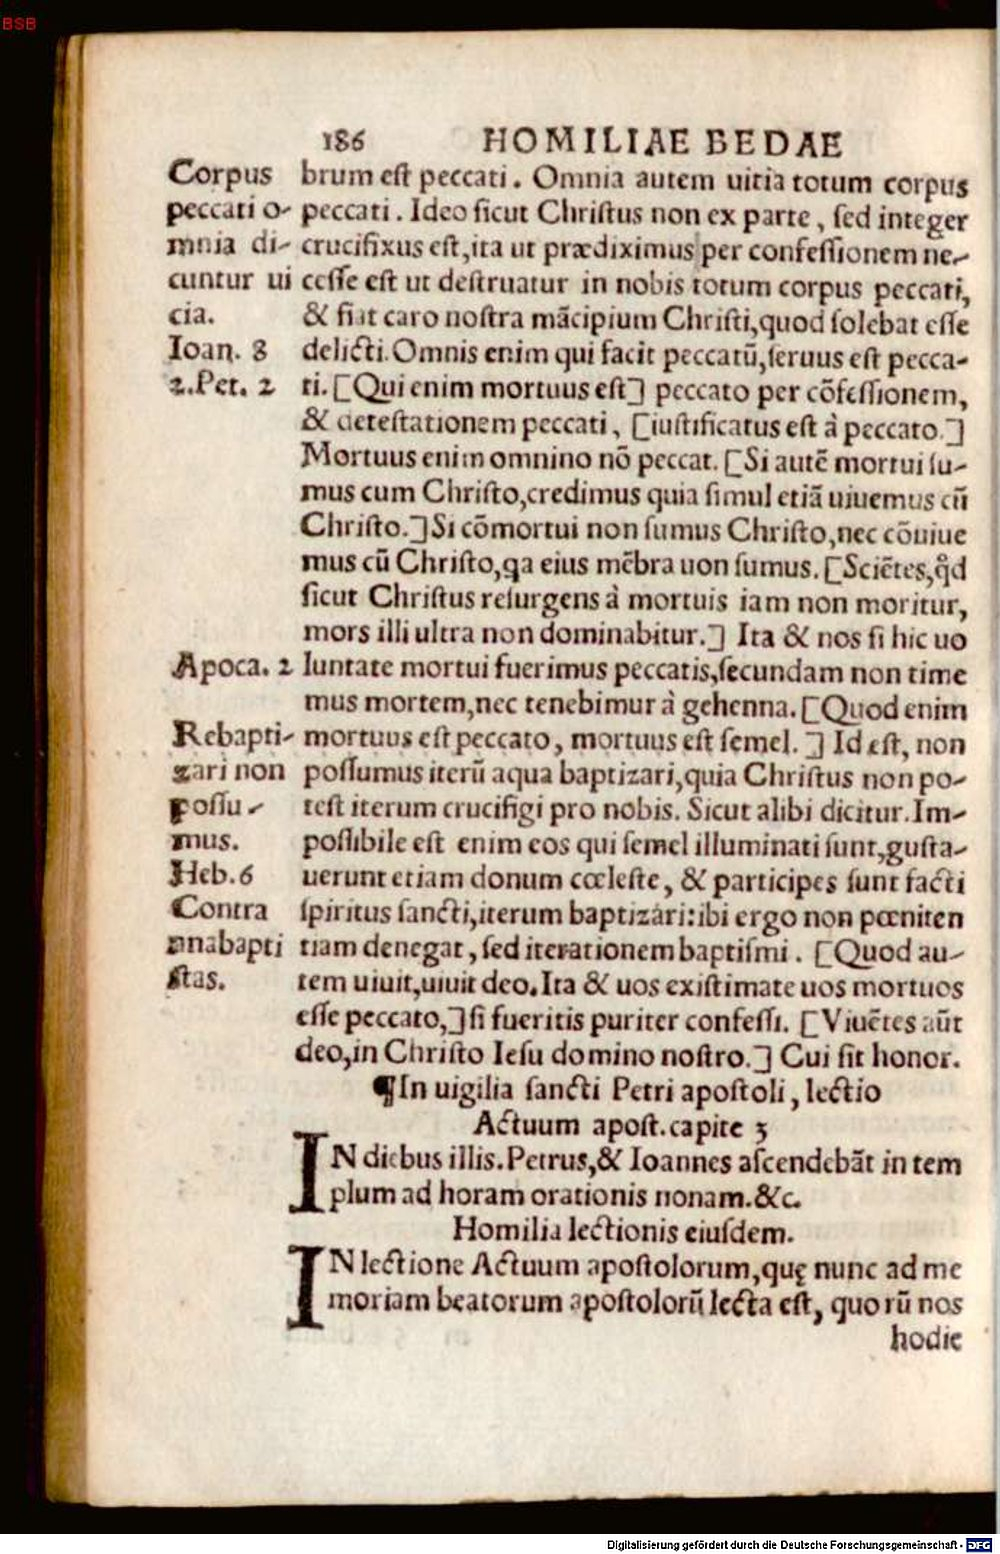 BSB
186 HOMILIAE BEDAE
Corpus
peccati o-
mnia di-
cuntur ui
cia.
Ioan. 8
2.Pet. 2
Apoca. 2
Rebapti-
zari non
possu-
mus.
Heb.6
Contra
anabapti
stas.
brum est peccati. Omnia autem uitia totum corpus
peccati. Ideo sicut Christus non ex parte, sed integer
crucifixus est, ita ut prædiximus per confessionem ne-
cesse est ut destruatur in nobis totum corpus peccati,
& fiat caro nostra mãcipium Christi, quod solebat esse
delicti. Omnis enim qui facit peccatũ, seruus est pecca-
ti. [Qui enim mortuus est] peccato per cõfessionem,
& detestationem peccati, [iustificatus est à peccato.]
Mortuus enim omnino nõ peccat. [Si autẽ mortui su-
mus cum Christo, credimus quia simul etiã uiuemus cũ
Christo.] Si cõmortui non sumus Christo, nec cõuiue
mus cũ Christo, qa eius mẽbra uon sumus. [Sciẽtes, qd
sicut Christus resurgens à mortuis iam non moritur,
mors illi ultra non dominabitur.] Ita & nos si hic uo
luntate mortui fuerimus peccatis, secundam non time
mus mortem, nec tenebimur à gehenna. [Quod enim
mortuus est peccato, mortuus est semel.] Id est, non
possumus iterũ aqua baptizari, quia Christus non po-
test iterum crucifigi pro nobis. Sicut alibi dicitur. Im-
possibile est enim eos qui semel illuminati sunt, gusta-
uerunt etiam donum cœleste, & participes sunt facti
spiritus sancti, iterum baptizari: ibi ergo non pœniten
tiam denegat, sed iterationem baptismi. [Quod au-
tem uiuit, uiuit deo. Ita & uos existimate uos mortuos
esse peccato,] si fueritis puriter confessi. [Viuẽtes aũt
deo, in Christo Iesu domino nostro.] Cui sit honor.
¶In uigilia sancti Petri apostoli, lectio
Actuum apost. capite 3
IN diebus illis. Petrus, & Ioannes ascendebãt in tem
plum ad horam orationis nonam. &c.
Homilia lectionis eiusdem.
IN lectione Actuum apostolorum, quę nunc ad me
moriam beatorum apostolorũ lecta est, quorũ nos
hodie
Digitalisierung gefördert durch die Deutsche Forschungsgemeinschaft - DFG